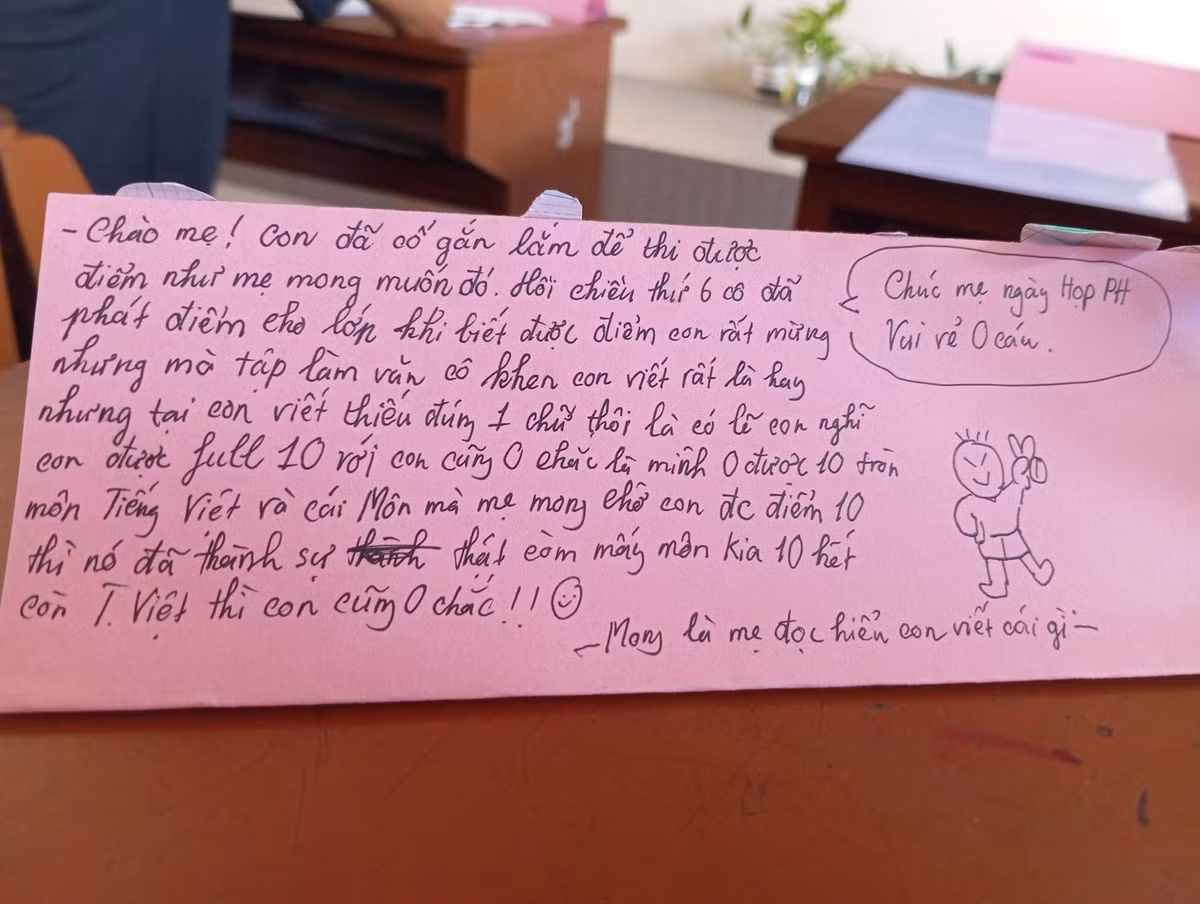 - Chào mẹ! Con đã cố gắn lắm để thi được
điểm như mẹ mong muốn đó. Hồi chiều thứ 6 cô đã
phát điểm cho lớp khi biết được điểm con rất mừng
nhưng mà tập làm văn cô khen con viết rất là hay
nhưng tại con viết thiếu đúng 1 chữ thôi là có lẽ con nghĩ
con được full 10 với con cũng 0 chắc là mình 0 được 10 tròn
môn Tiếng Việt và cái Môn mà mẹ mong chờ con đc điểm 10
thì nó đã thành sự thật còn mấy môn kia 10 hết
còn T. Việt thì con cũng 0 chắc!!
- Mong là mẹ đọc hiểu con viết cái gì -
Chúc mẹ ngày Họp PH
Vui vẻ 0 cáu.